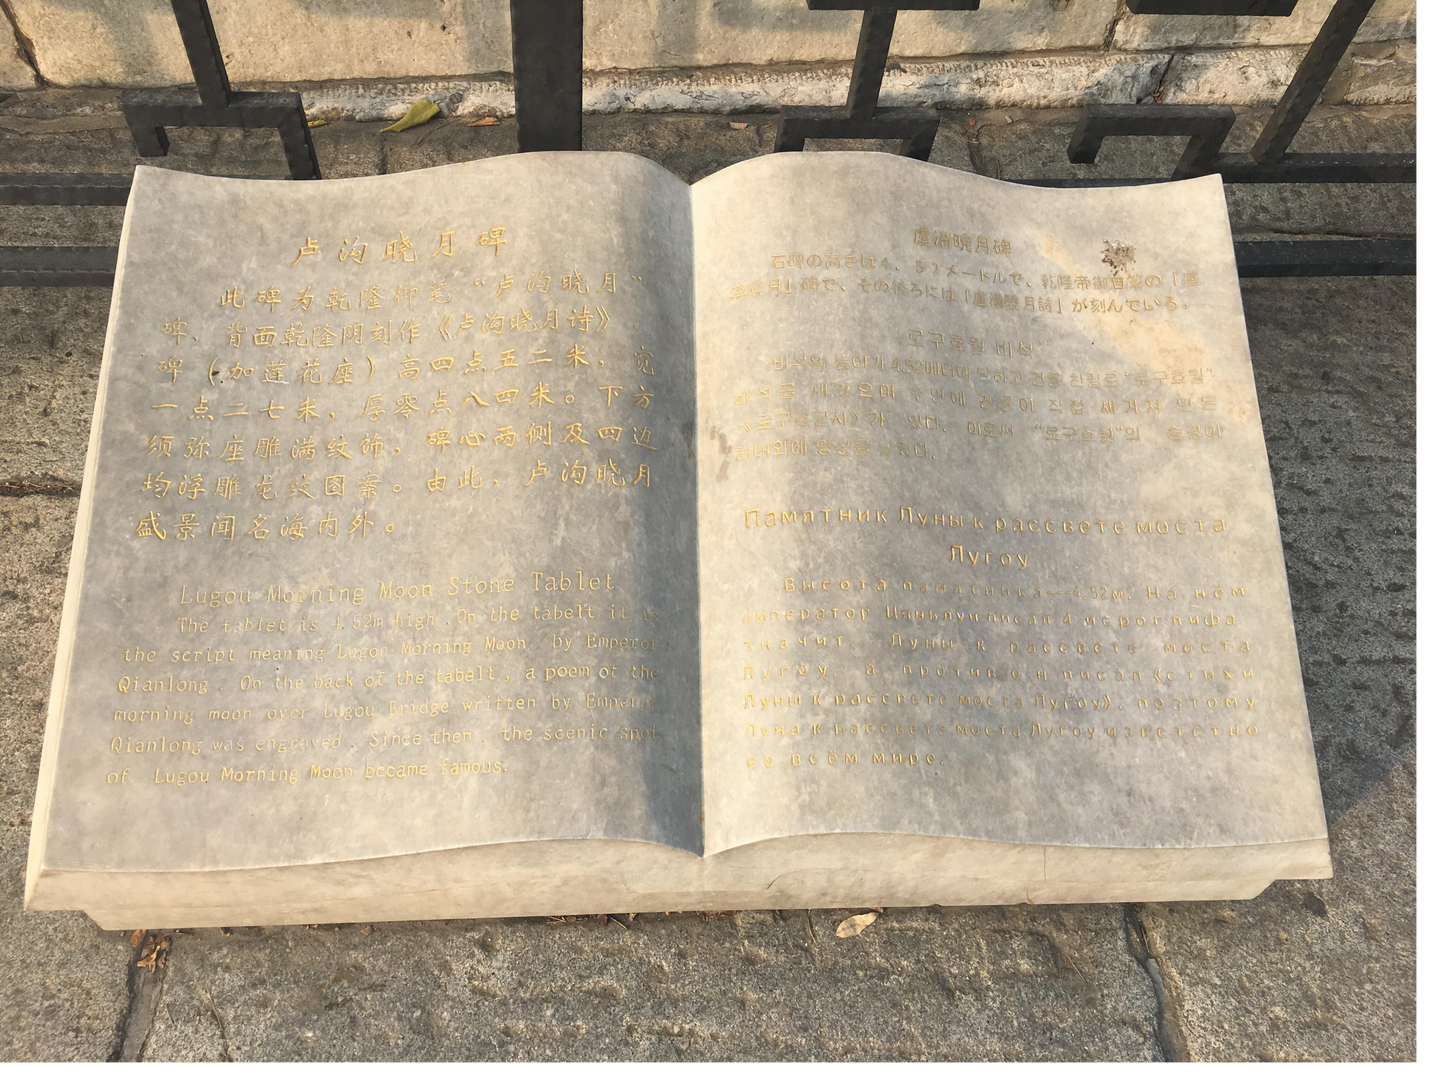 卢沟晓月碑
此碑为乾隆御笔“卢沟晓月”
碑，背面乾隆阴刻作《卢沟晓月诗》。
碑（加莲花座）高四点五二米，宽
一点二七米，厚零点八四米。下方
须弥座雕满纹饰，碑心两侧及四边
均浮雕龙纹图案。由此，卢沟晓月
盛景闻名海内外。
Lugou Morning Moon Stone Tablet
The tablet is 4.52m high. On the tabelt it is
the script meaning Lugou Morning Moon by Emperor
Qianlong. On the back of the tabelt, a poem of the
morning moon over Lugou Bridge written by Emperor
Qianlong was engraved. Since then, the scenic spot
of Lugou Morning Moon became famous.
盧溝暁月碑
石碑の高さは4、52メートルで、乾隆帝御直筆の「盧
溝暁月」碑で、その後ろには「盧溝暁月詩」が刻んでいる。
로구효월 비석
비석의 높이가 4.52메터에 달하고 건륭 친필로 “로구효월”
Памятник Луны к рассвете моста
Лугоу
Высота памятника—4.52м. На нём
император Цяньлун писал 4 иероглифа
значит Луны к рассвете моста
Лугоу, а против он писал «стихи
Луны к рассвете моста Лугоу», поэтому
Луна к рассвете моста Лугоу известно
во всём мире.